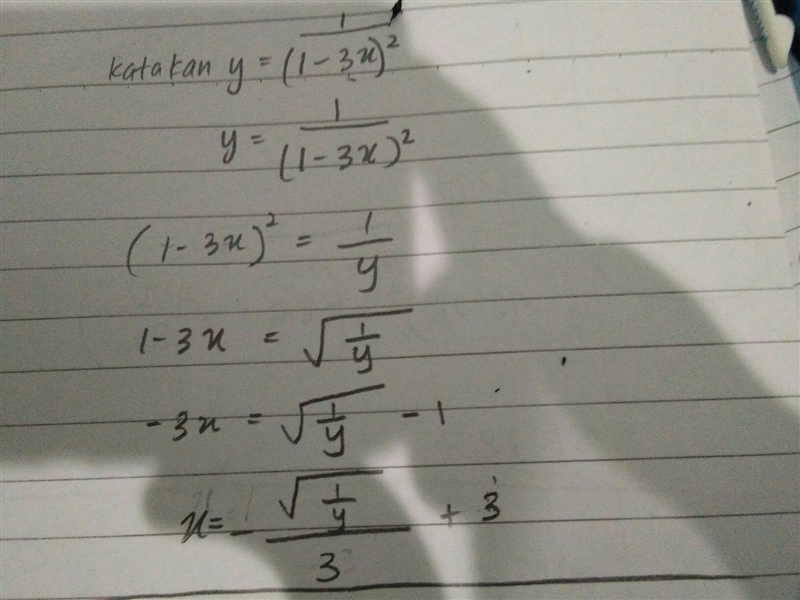 katakan y = 1/(1 - 3x)²
y = 1/(1 - 3x)²
(1 - 3x)² = 1/y
1 - 3x = √(1/y)
- 3x = √(1/y) - 1
x = - √(1/y)/3 + 3